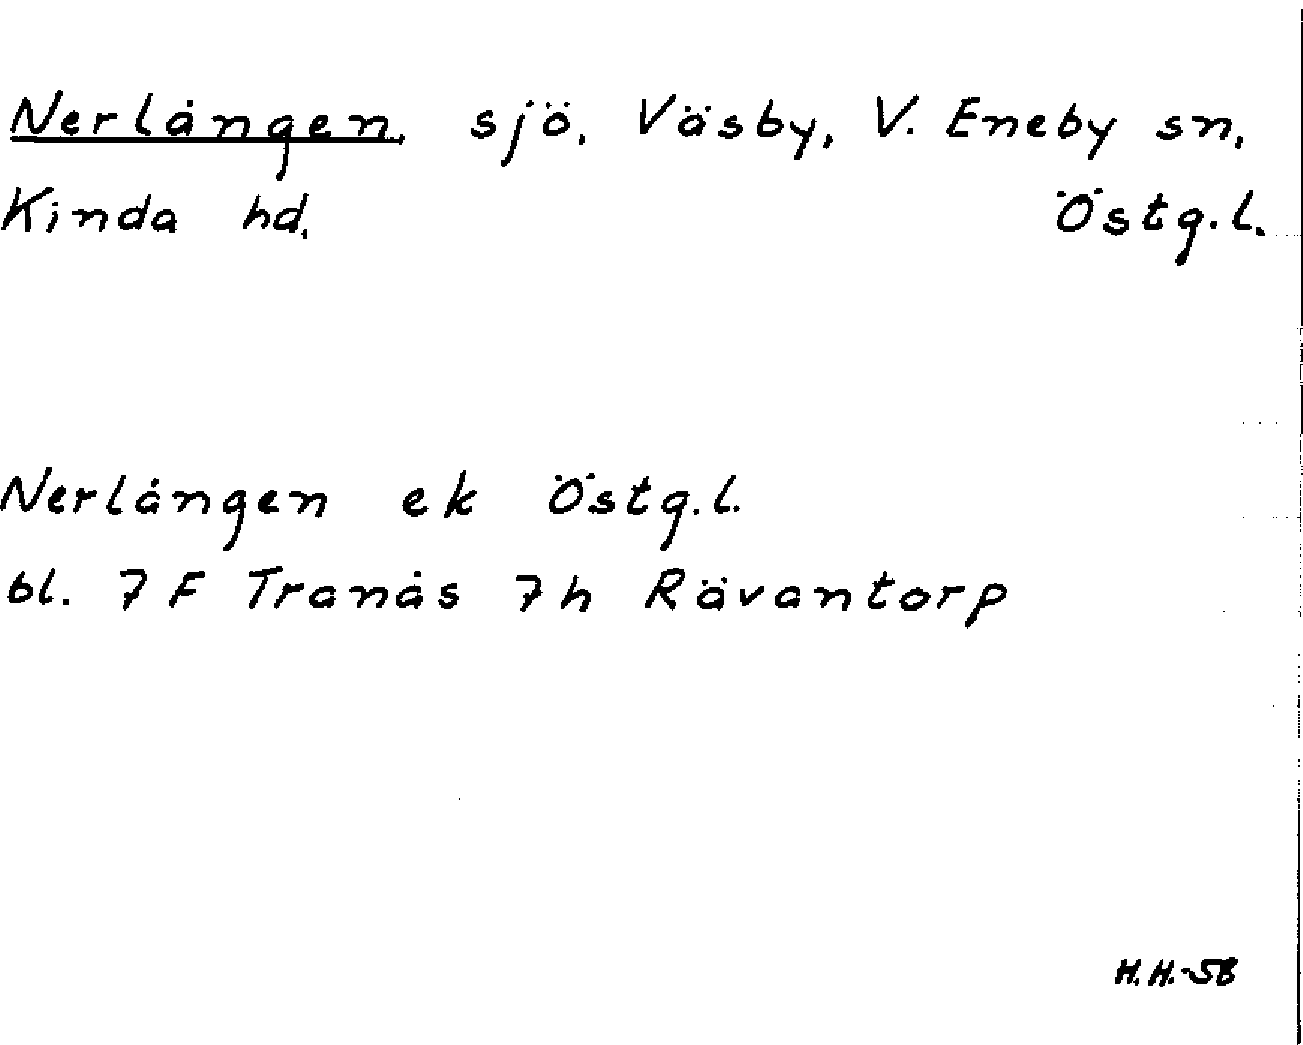 Nerlången, sjö, Väsby, V. Eneby sn,
Kinda hd. Östg.l.
Nerlången ek Östg.l.
bl. 7F Tranås 7h Rävantorp
H.H.-58